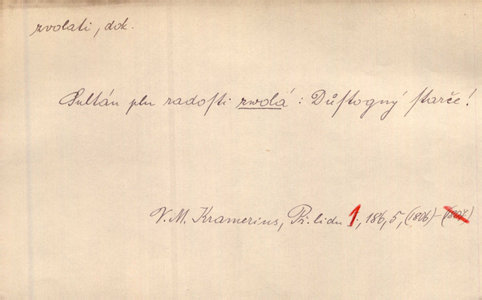 zvolati, dok.
Sultán pln radosti zwolá: Důstogný starče!
V. M. Kramerius, Př. lidu 1., 186, 5, (1806)